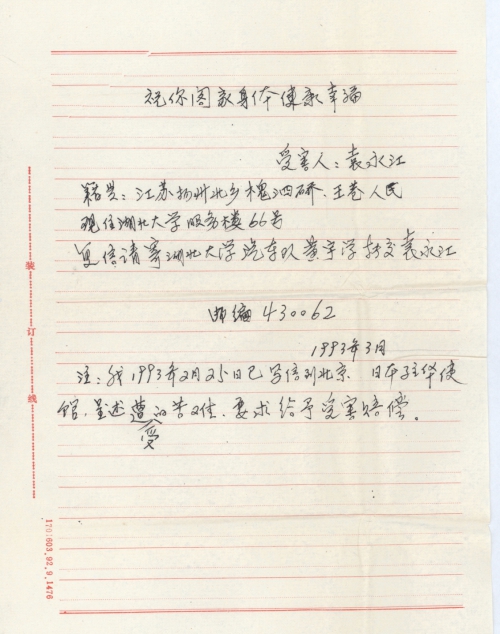 祝你阖家身体健康幸福
受害人：袁永江
籍贯：江苏扬州北乡槐泗桥.王巷人民
现住湖北大学服务楼66号
复信请寄湖北大学汽车队黄宇学转交袁永江
邮编430062
1993年3月
注：我1993年2月25日已写信到北京.日本驻华使
馆.呈述遭受的苦难.要求给予受害赔偿。
装
订
线
1701603.92.9.1476